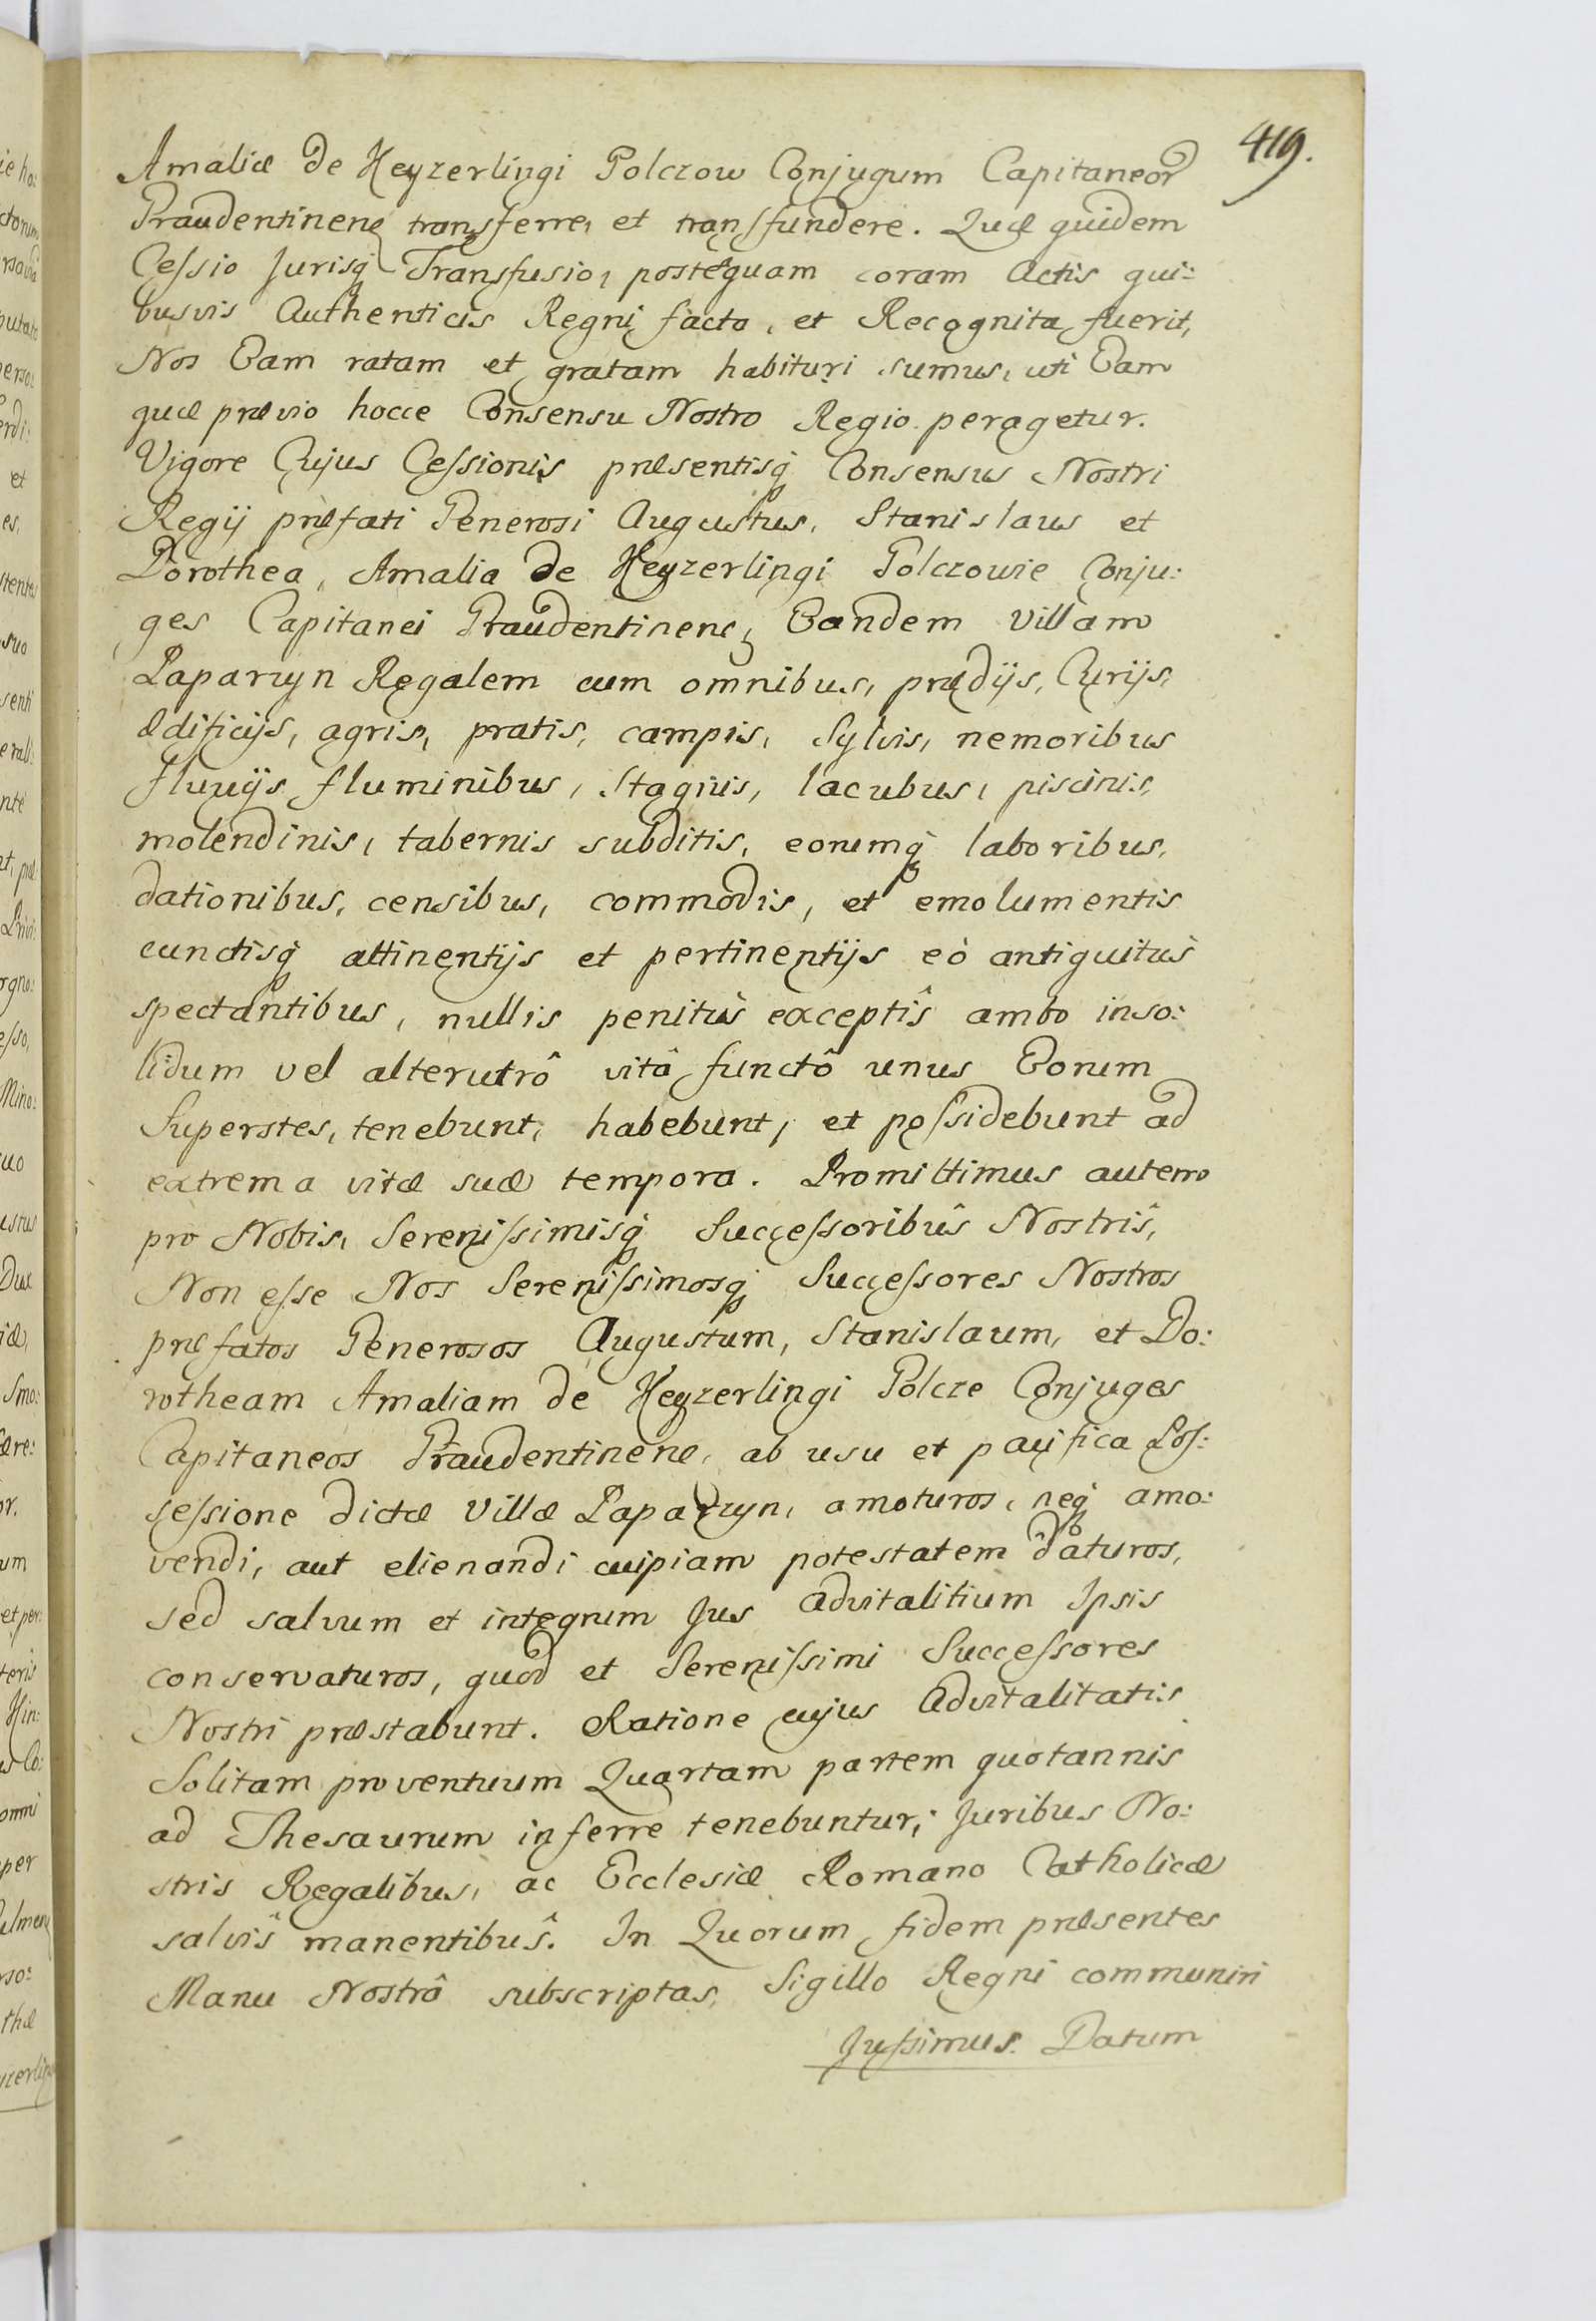 419.
Amaliæ de Keyzerlingi Polczow Conjugum Capitaneor
Graudentinenę transferre, et transfundere. Quæ quidem
Cessio Jurisq Transfusio, posteàquam coram Actis qui:
busvis Authenticis Regni facta, et Recognita fuerit,
Nos Eam ratam et gratam habituri sumus, uti Eam
quæ prævio hocce Consensu Nostro Regio peragetur.
Vigore Cujus Cessionis præsentisq Consensus Nostri
Regij præfati Generosi Augustus, Stanislaus et
Dorothea, Amalia de Keyzerlingi Polczowie Conju:
ges Capitanei Graudentinenę Eandem Villam
Paparzyn Regalem cum omnibus, prædijs, Curijs,
ædificijs, agris, pratis, campis, Sylvis, nemoribus
fluvijs fluminibus, Stagnis, lacubus, piscinis,
molendinis, tabernis subditis, eorumq laboribus,
dationibus, censibus, commodis, et emolumentis
cunctisq attinentijs et pertinentijs eò antiquitùs
spectantibus, nullis penitùs exceptîs ambo inso:
lidum vel alterutrô vitâ functô unus Eorum
Superstes, tenebunt, habebunt, et possidebunt ad
extrema vitæ suæ tempora. Promittimus autem
pro Nobis, Serenissimisq Successoribûs Nostrîs,
Non esse Nos Serenissimosq Successores Nostros
præfatos Generosos Augustum, Stanislaum, et Do:
rotheam Amaliam de Keyzerlingi Polcze Conjuges
Capitaneos Graudentinenę, ab usu et pacifica Pos:
sessione dictæ Villæ Paparzyn, amoturos, neq amo:
vendi, aut elienandi cuipiam potestatem daturos,
sed salvum et integrum Jus Advitalitium Ipsis
conservaturos, quod et Serenissimi Successores
Nostri præstabunt. Ratione cujus Advitalitatis
Solitam proventuum Quartam partem quotannis
ad Thesaurum inferre tenebuntur; Juribus No:
stris Regalibus, ac Ecclesiæ Romano Catholicæ
salvîs manentibûs. In Quorum fidem præsentes
Manu Nostrâ subscriptas, Sigillo Regni communiri
Jussimus. Datum